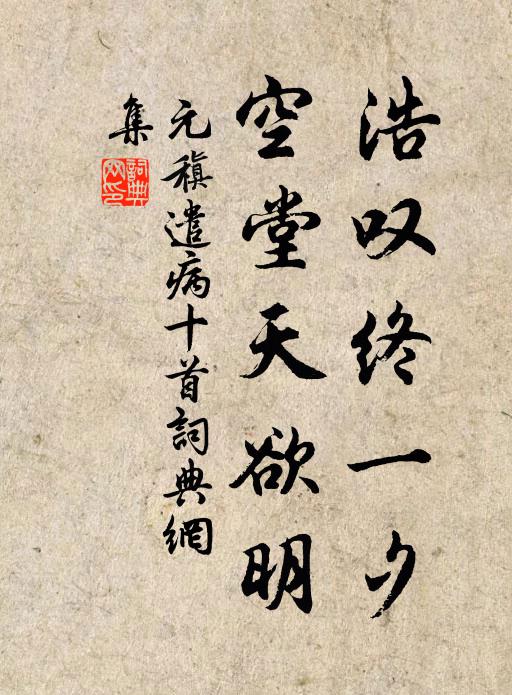 浩叹终一夕
空堂天欲明
元稹遣病十首詞典網
集
詞典网印